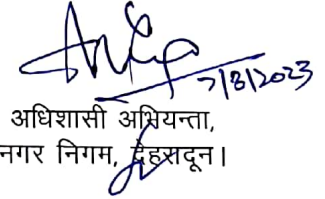 7/8/2023
अधिशासी अभियन्ता,
नगर निगम, देहरादून।